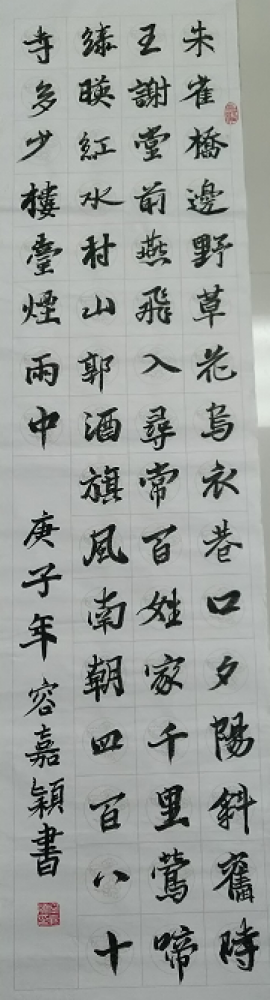 朱雀橋邊野草花烏衣巷口夕陽斜舊時
王謝堂前燕飛入尋常百姓家千里鶯啼
綠暎紅水村山郭酒旗風南朝四百八十
寺多少樓臺煙雨中
庚子年容嘉穎書